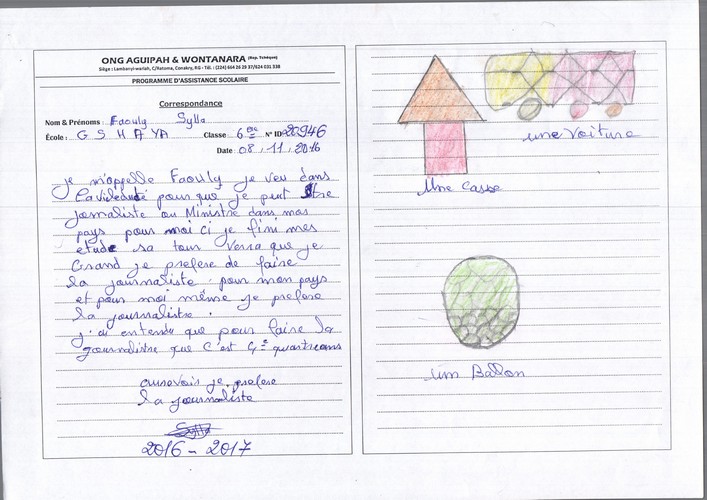 ONG AGUIPAH & WONTANARA (Rep. Tchèque)
Siège : Lambanyi-wariah, C/Ratoma, Conakry, RG - Tél. : (224) 664 26 29 37/624 031 538
PROGRAMME D'ASSISTANCE SCOLAIRE
Correspondance
Nom & Prénoms : Faouly Sylla
École : G S H A YA Classe 6 ème N° ID 20946
Date : 08 . 11 . 2016
je m'appelle Faouly je veu dans
pour que je peut être
journaliste ou Ministre dans mos
pays pour moi ci je fini mes
etude sa tou Verra que je
Grand je prefere de faire
la journaliste pour mon pays
et pour moi même je prefere
la journalistre .
j'ai entendu que pour faire la
journalistre que c'est 4
aurevoir je prefere
la journaliste
Sylla
2016 - 2017
une voiture
Une casse
um Ballon